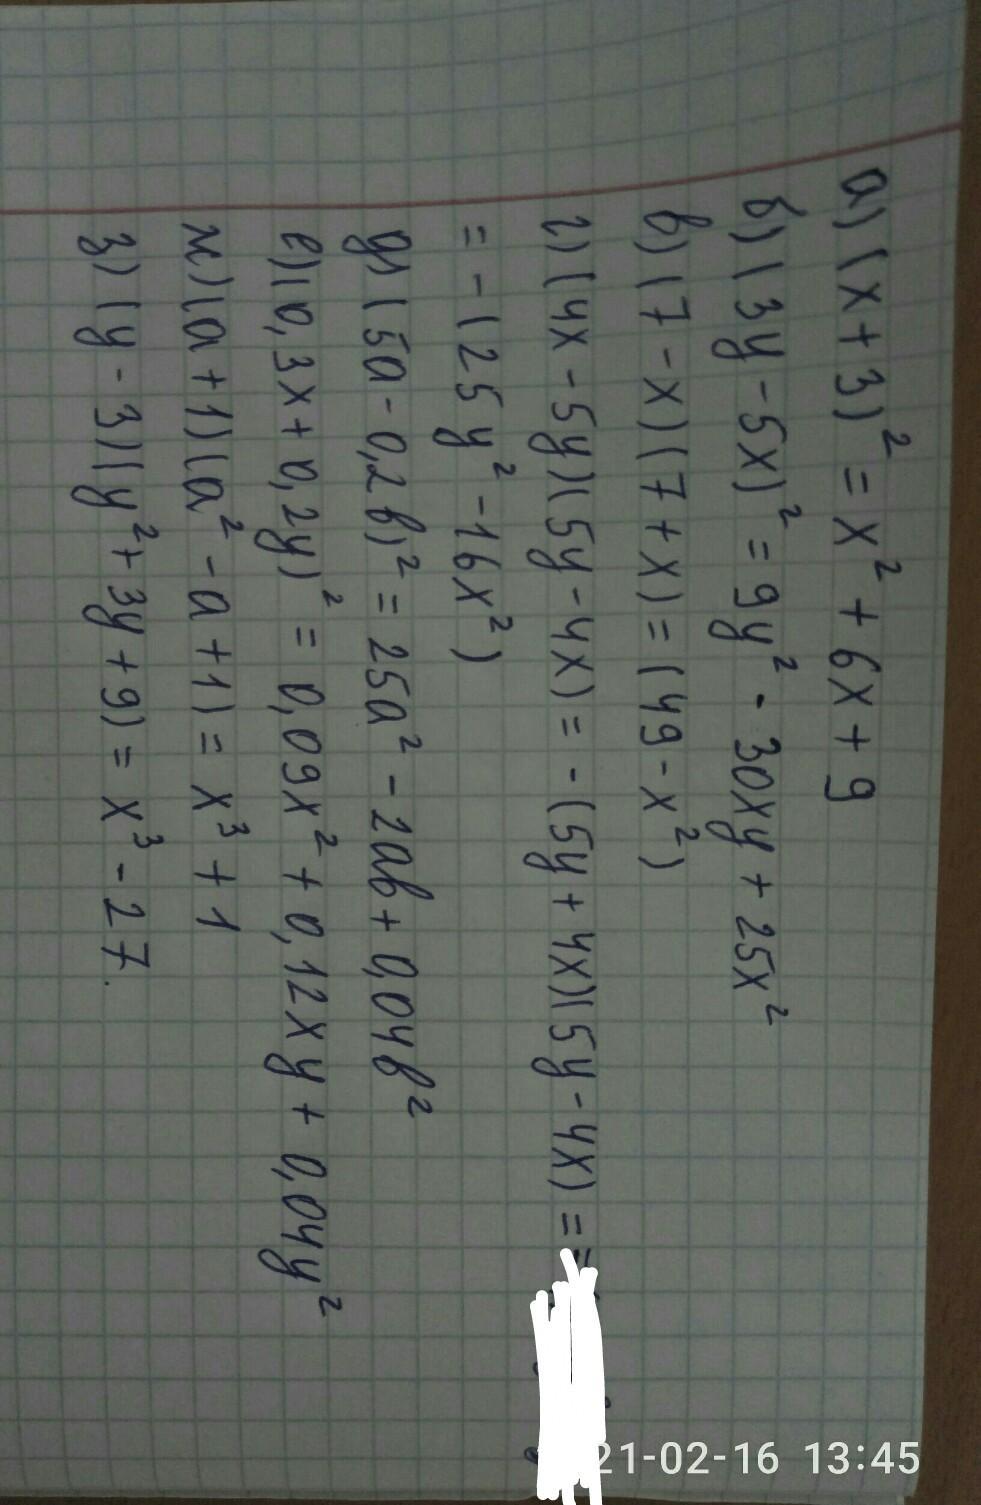 а) (x + 3)² = x² + 6x + 9
б) (3y - 5x)² = 9y² - 30xy + 25x²
в) (7 - x)(7 + x) = (49 - x²)
г) (4x - 5y)(5y - 4x) = -(5y + 4x)(5y - 4x) =
= -(25y² - 16x²)
д) (5a - 0,2b)² = 25a² - 2ab + 0,04b²
е) (0,3x + 0,2y)² = 0,09x² + 0,12xy + 0,04y²
ж) (a + 1)(a² - a + 1) = x³ + 1
з) (y - 3)(y² + 3y + 9) = x³ - 27.
21-02-16 13:45